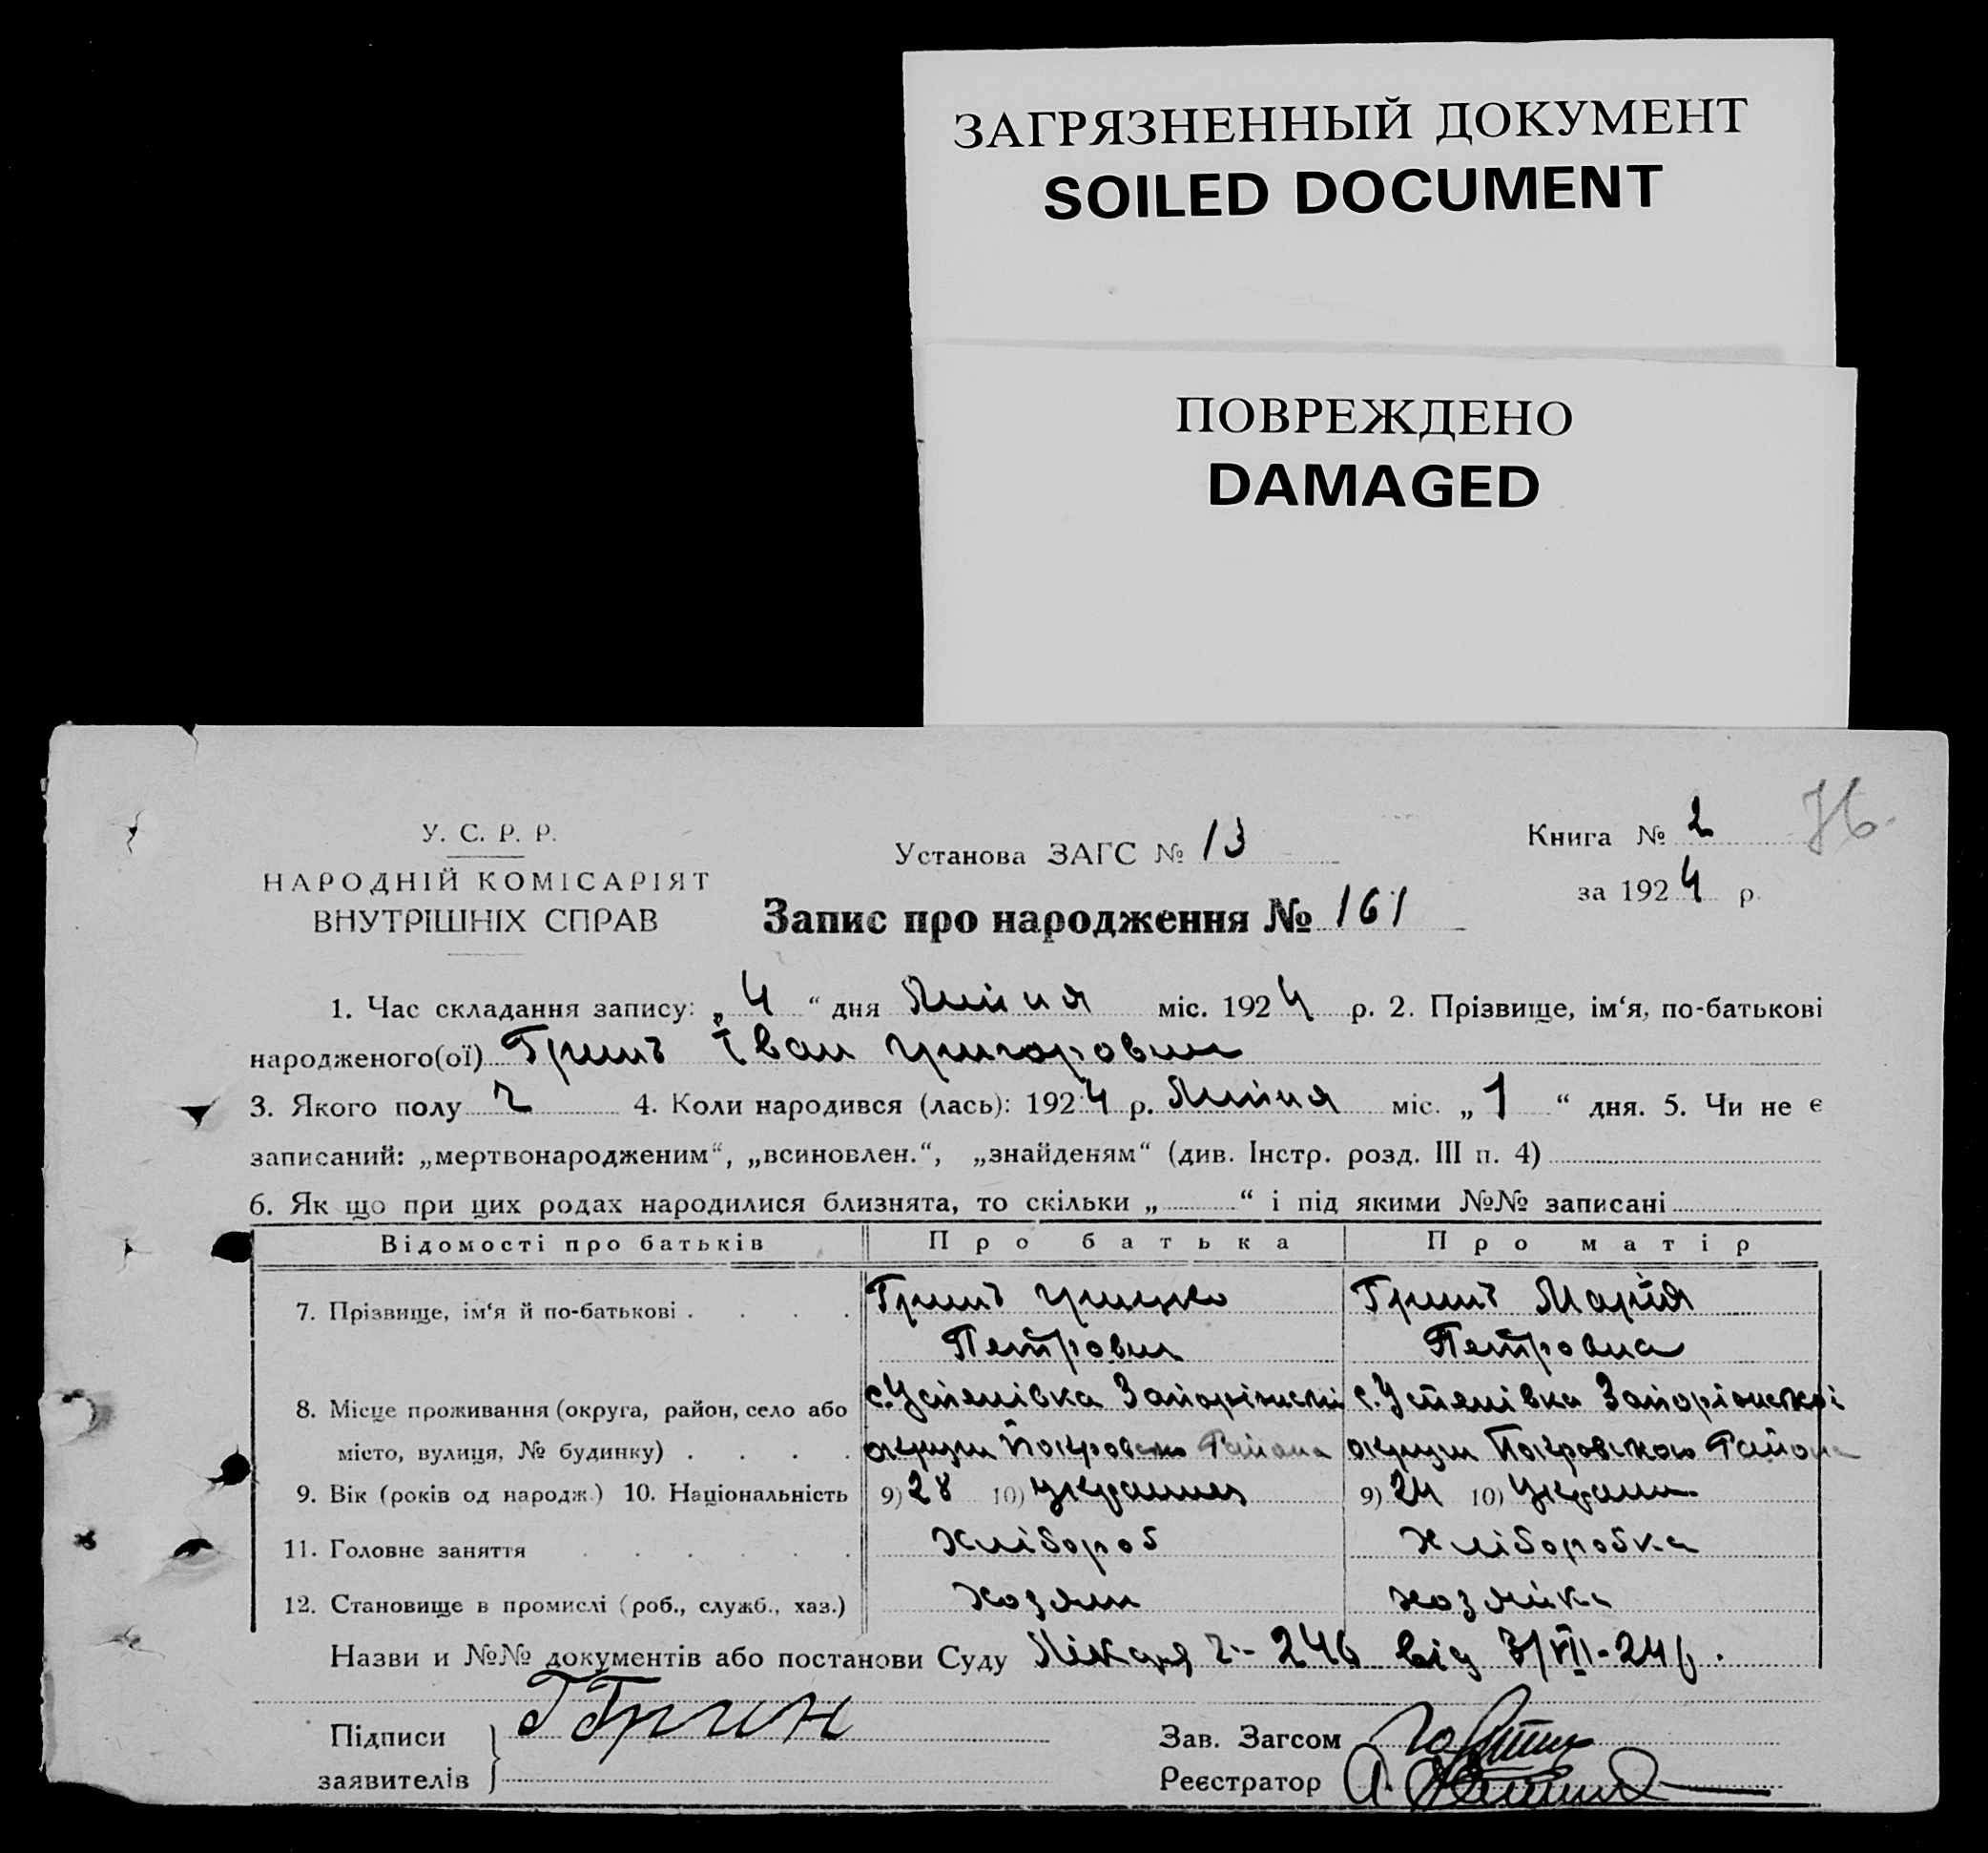 ЗАГРЯЗНЕННЫЙ ДОКУМЕНТ
SOILED DOCUMENT
ПОВРЕЖДЕНО
DAMAGED
76.
У. С. Р. Р.
НАРОДНІЙ КОМІСАРІЯТ
ВНУТРІШНІХ СПРАВ
Установа ЗАГС № 13
Книга № 2
за 1924 р.
Запис про народження № 161
1. Час складання запису: „4“ дня Липня міс. 1924 р. 2. Прізвище, ім‘я, по-батькові
народженого(ої) Гринь Іван Григорович
3. Якого полу ч 4. Коли народився (лась): 1924 р. Липня міс. „1“ дня. 5. Чи не є
записаний: „мертвонародженим“, „всиновлен.“, „знайденям“ (див. Інстр. розд. III п. 4)
6. Як що при цих родах народилися близнята, то скільки „ “ і під якими №№ записані
Відомості про батьків Про батька Про матір
7. Прізвище, ім‘я й по-батькові . . . . Гринь Грицко Гринь Марія
Петрович Петровна
8. Місце проживання (округа, район, село або с. Успенівка Запоріжскі с. Успенівка Запоріжскоі
місто, вулиця, № будинку) . . . . округи Покровско Района округи Покровского Района
9. Вік (років од народж.) 10. Національність 9) 28 10) 9) 24 10)
11. Головне заняття . . . . . . Хлібороб Хліборобка
12. Становище в промислі (роб., служб., хаз.) Хозяин хозяйка
Назви и №№ документів або постанови Суду Лікаря ч - 246 від 3/VII-24 р.
Підписи
заявителів
Г Грин
Зав. Загсом
Реєстратор